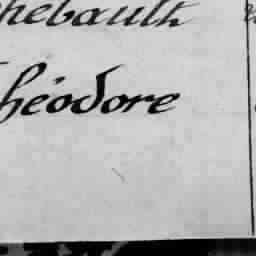 hebault
héodore